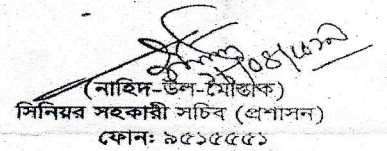 (নাহিদ-উল-মোস্তাক)
সিনিয়র সহকারী সচিব (প্রশাসন)
ফোন: ৯৫১৫৫৫১